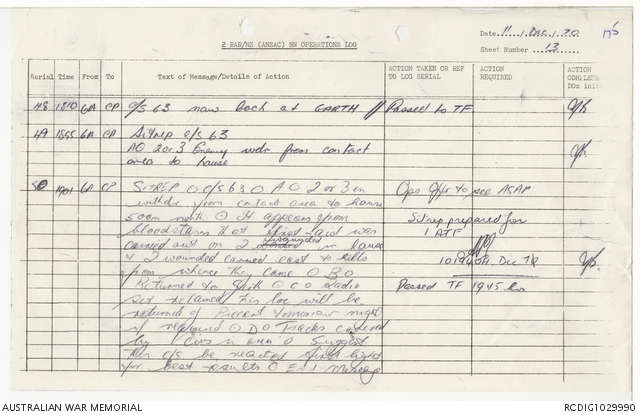 Date 11 / Dec / 70
2 RAR/NZ (ANZAC) BN OPERATIONS LOG
Sheet Number 13
Serial Time From To Text of Message/Details of Action ACTION TAKEN OR REF TO LOG SERIAL ACTION REQUIRED ACTION COMPLETE DOs init
48 1810 6A CP c/s 63 now back at GARTH // Passed to TF
49 1855 6A CP Sitrep c/s 63
AO 2or3 Enemy wdr from contact
area to house
50 1901 6A CP SITREP O c/s 63 O A O 2 or 3 en
withdr from contact area to house
500m north O It appears from
bloodstains that first aid was
carried out on 2 wounded in house
& 2 wounded carried east to hills
from whence they came O B O
Returned to Garth O C O Radio
set retained this loc will be
returned if tomorrow night
if required O D O Tracks covered
by in area O Suggest
this c/s be reacted first light
for best results O End Message
Ops Offr to see ASAP
Sitrep prepared for
1 ATF
Passed TF 1945 hr
AUSTRALIAN WAR MEMORIAL
RCDIG1029990